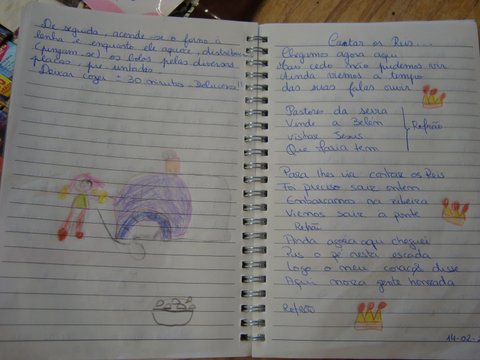 De seguida, acende-se o forno a
lenha e enquanto ele aquece, distribui
(pingam-se) os bolos pelas diversas
placas pré untadas.
Deixar cozer ± 30 minutos. Deliciosos!!
Cantar os Reis...
Chegamos agora aqui
Mais cedo não pudemos vir
Ainda viemos a tempo
das suas falas ouvir
Pastores da serra
Vinde a Belém
visitar Jesus
Que faria tem
Refrão
Para lhes vir cantar os Reis
Foi preciso sair ontem
Embarcamos na ribeira
Viemos sair à ponte
Refrão
Ainda agora aqui cheguei
Pus o pé nesta escada
Logo o meu coração disse
Aqui mora gente honrada
Refrão
14-02-